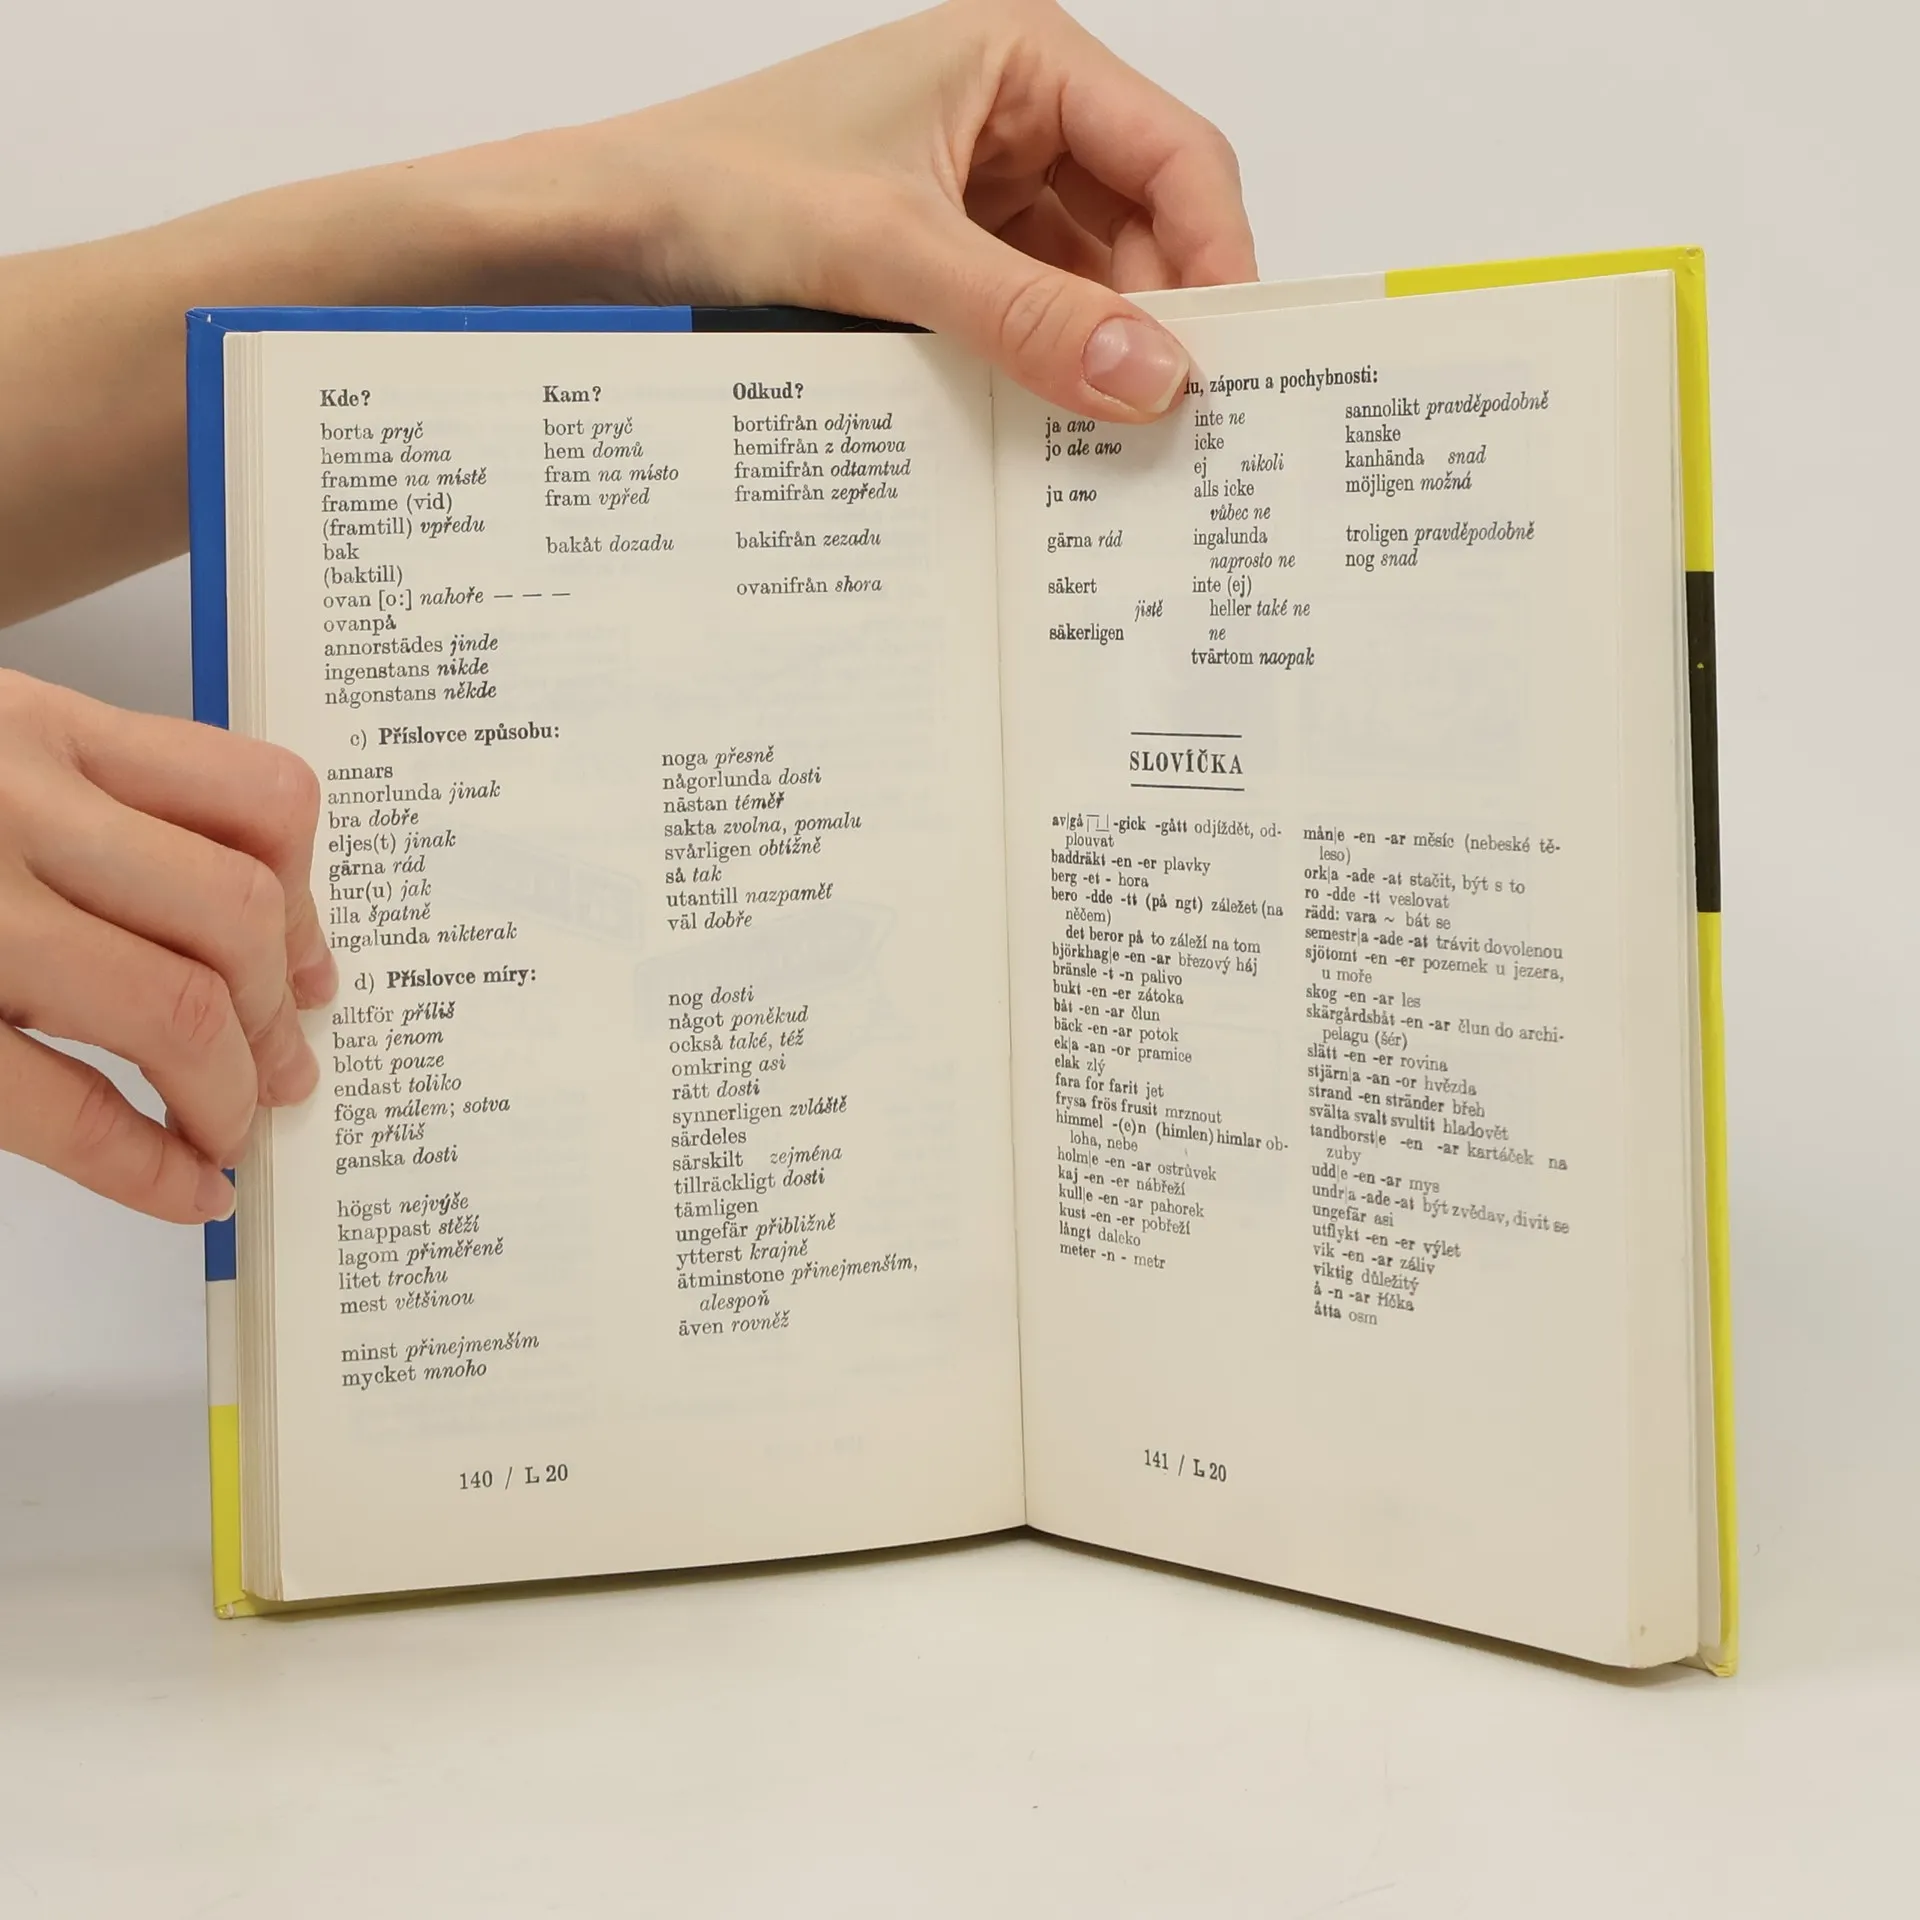 Kde? Kam? Odkud?
borta pryč bort pryč bortifrån odjinud
hemma doma hem domů hemifrån z domova
framme na místě fram na místo framifrån odtamtud
framme (vid) fram vpřed framifrån zepředu
(framtill) vpředu
bak bakåt dozadu bakifrån zezadu
(baktill)
ovan [o:] nahoře — — — ovanifrån shora
ovanpå
annorstädes jinde
ingenstans nikde
någonstans někde
c) Příslovce způsobu:
annars
annorlunda jinak
bra dobře
eljes(t) jinak
gärna rád
hur(u) jak
illa špatně
ingalunda nikterak
noga přesně
någorlunda dosti
nästan téměř
sakta zvolna, pomalu
svårligen obtížně
så tak
utantill nazpaměť
väl dobře
d) Příslovce míry:
alltför příliš
bara jenom
blott pouze
endast toliko
föga málem; sotva
för příliš
ganska dosti
högst nejvýše
knappast stěží
lagom přiměřeně
litet trochu
mest většinou
minst přinejmenším
mycket mnoho
nog dosti
något poněkud
också také, též
omkring asi
rätt dosti
synnerligen zvláště
särdeles
särskilt zejména
tillräckligt dosti
tämligen
ungefär přibližně
ytterst krajně
åtminstone přinejmenším,
alespoň
även rovněž
140 / L 20
záporu a pochybnosti:
ja ano
jo ale ano
ju ano
gärna rád
säkert
jistě
säkerligen
inte ne
icke
ej nikoli
alls icke
vůbec ne
ingalunda
naprosto ne
inte (ej)
heller také ne
ne
tvärtom naopak
sannolikt pravděpodobně
kanske
kanhända snad
möjligen možná
troligen pravděpodobně
nog snad
SLOVÍČKA
av|gå -gick -gått odjíždět, od-
plouvat
baddräkt -en -er plavky
berg -et - hora
bero -dde -tt (på ngt) záležet (na
něčem)
det beror på to záleží na tom
björkhag|e -en -ar březový háj
bränsle -t -n palivo
bukt -en -er zátoka
båt -en -ar člun
bäck -en -ar potok
ek|a -an -or pramice
elak zlý
fara for farit jet
frysa frös frusit mrznout
himmel -(e)n (himlen) himlar ob-
loha, nebe
holm|e -en -ar ostrůvek
kaj -en -er nábřeží
kull|e -en -ar pahorek
kust -en -er pobřeží
långt daleko
meter -n - metr
mån|e -en -ar měsíc (nebeské tě-
leso)
ork|a -ade -at stačit, být s to
ro -dde -tt veslovat
rädd: vara ~ bát se
semestr|a -ade -at trávit dovolenou
sjötomt -en -er pozemek u jezera,
u moře
skog -en -ar les
skärgårdsbåt -en -ar člun do archi-
pelagu (šér)
slätt -en -er rovina
stjärn|a -an -or hvězda
strand -en stränder břeh
svälta svalt svultit hladovět
tandborst|e -en -ar kartáček na
zuby
udd|e -en -ar mys
undr|a -ade -at být zvědav, divit se
ungefär asi
utflykt -en -er výlet
vik -en -ar záliv
viktig důležitý
å -n -ar říčka
åtta osm
141 / L 20